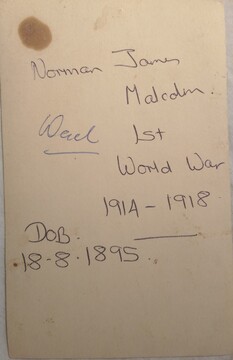 Norman James
Malcolm.
1st
World War
1914 - 1918
DOB.
18-8.1895.